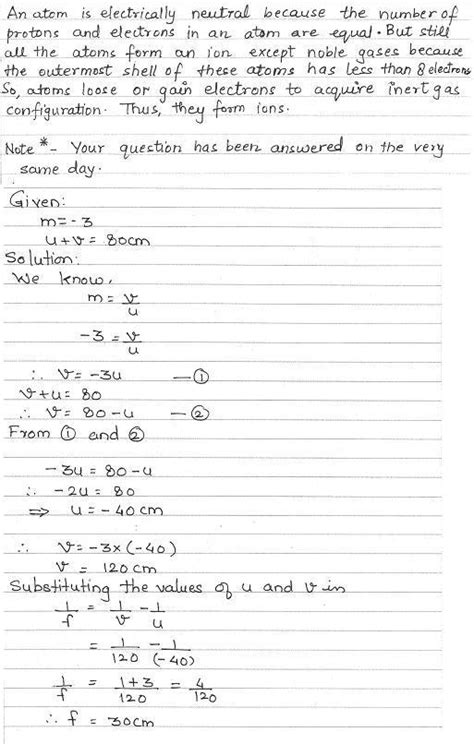 An atom is electrically neutral because the number of
protons and electrons in an atom are equal. But still
all the atoms form an ion except noble gases because
the outermost shell of these atoms has less than 8 electrons
So, atoms loose or gain electrons to acquire inert gas
configuration. Thus, they form ions.
Note *- Your question has been answered on the very
same day.
Given:
m = -3
u+v = 80cm
Solution:
We know,
m = v/u
-3 = v/u
∴ v = -3u —①
v+u = 80
∴ v = 80-u —②
From ① and ②
-3u = 80-u
∴ -2u = 80
⇒ u = -40 cm
∴ v = -3×(-40)
v = 120 cm
Substituting the values of u and v in
1/f = 1/v - 1/u
= 1/120 - 1/(-40)
1/f = 1+3/120 = 4/120
∴ f = 30cm